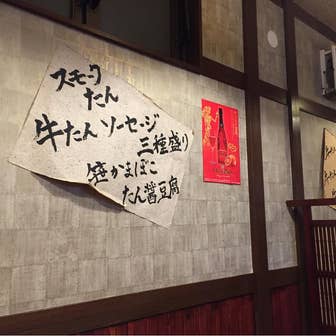 スモーク
たん
牛たんソーセージ
三種盛り
笹かまぼこ
たん醤豆腐